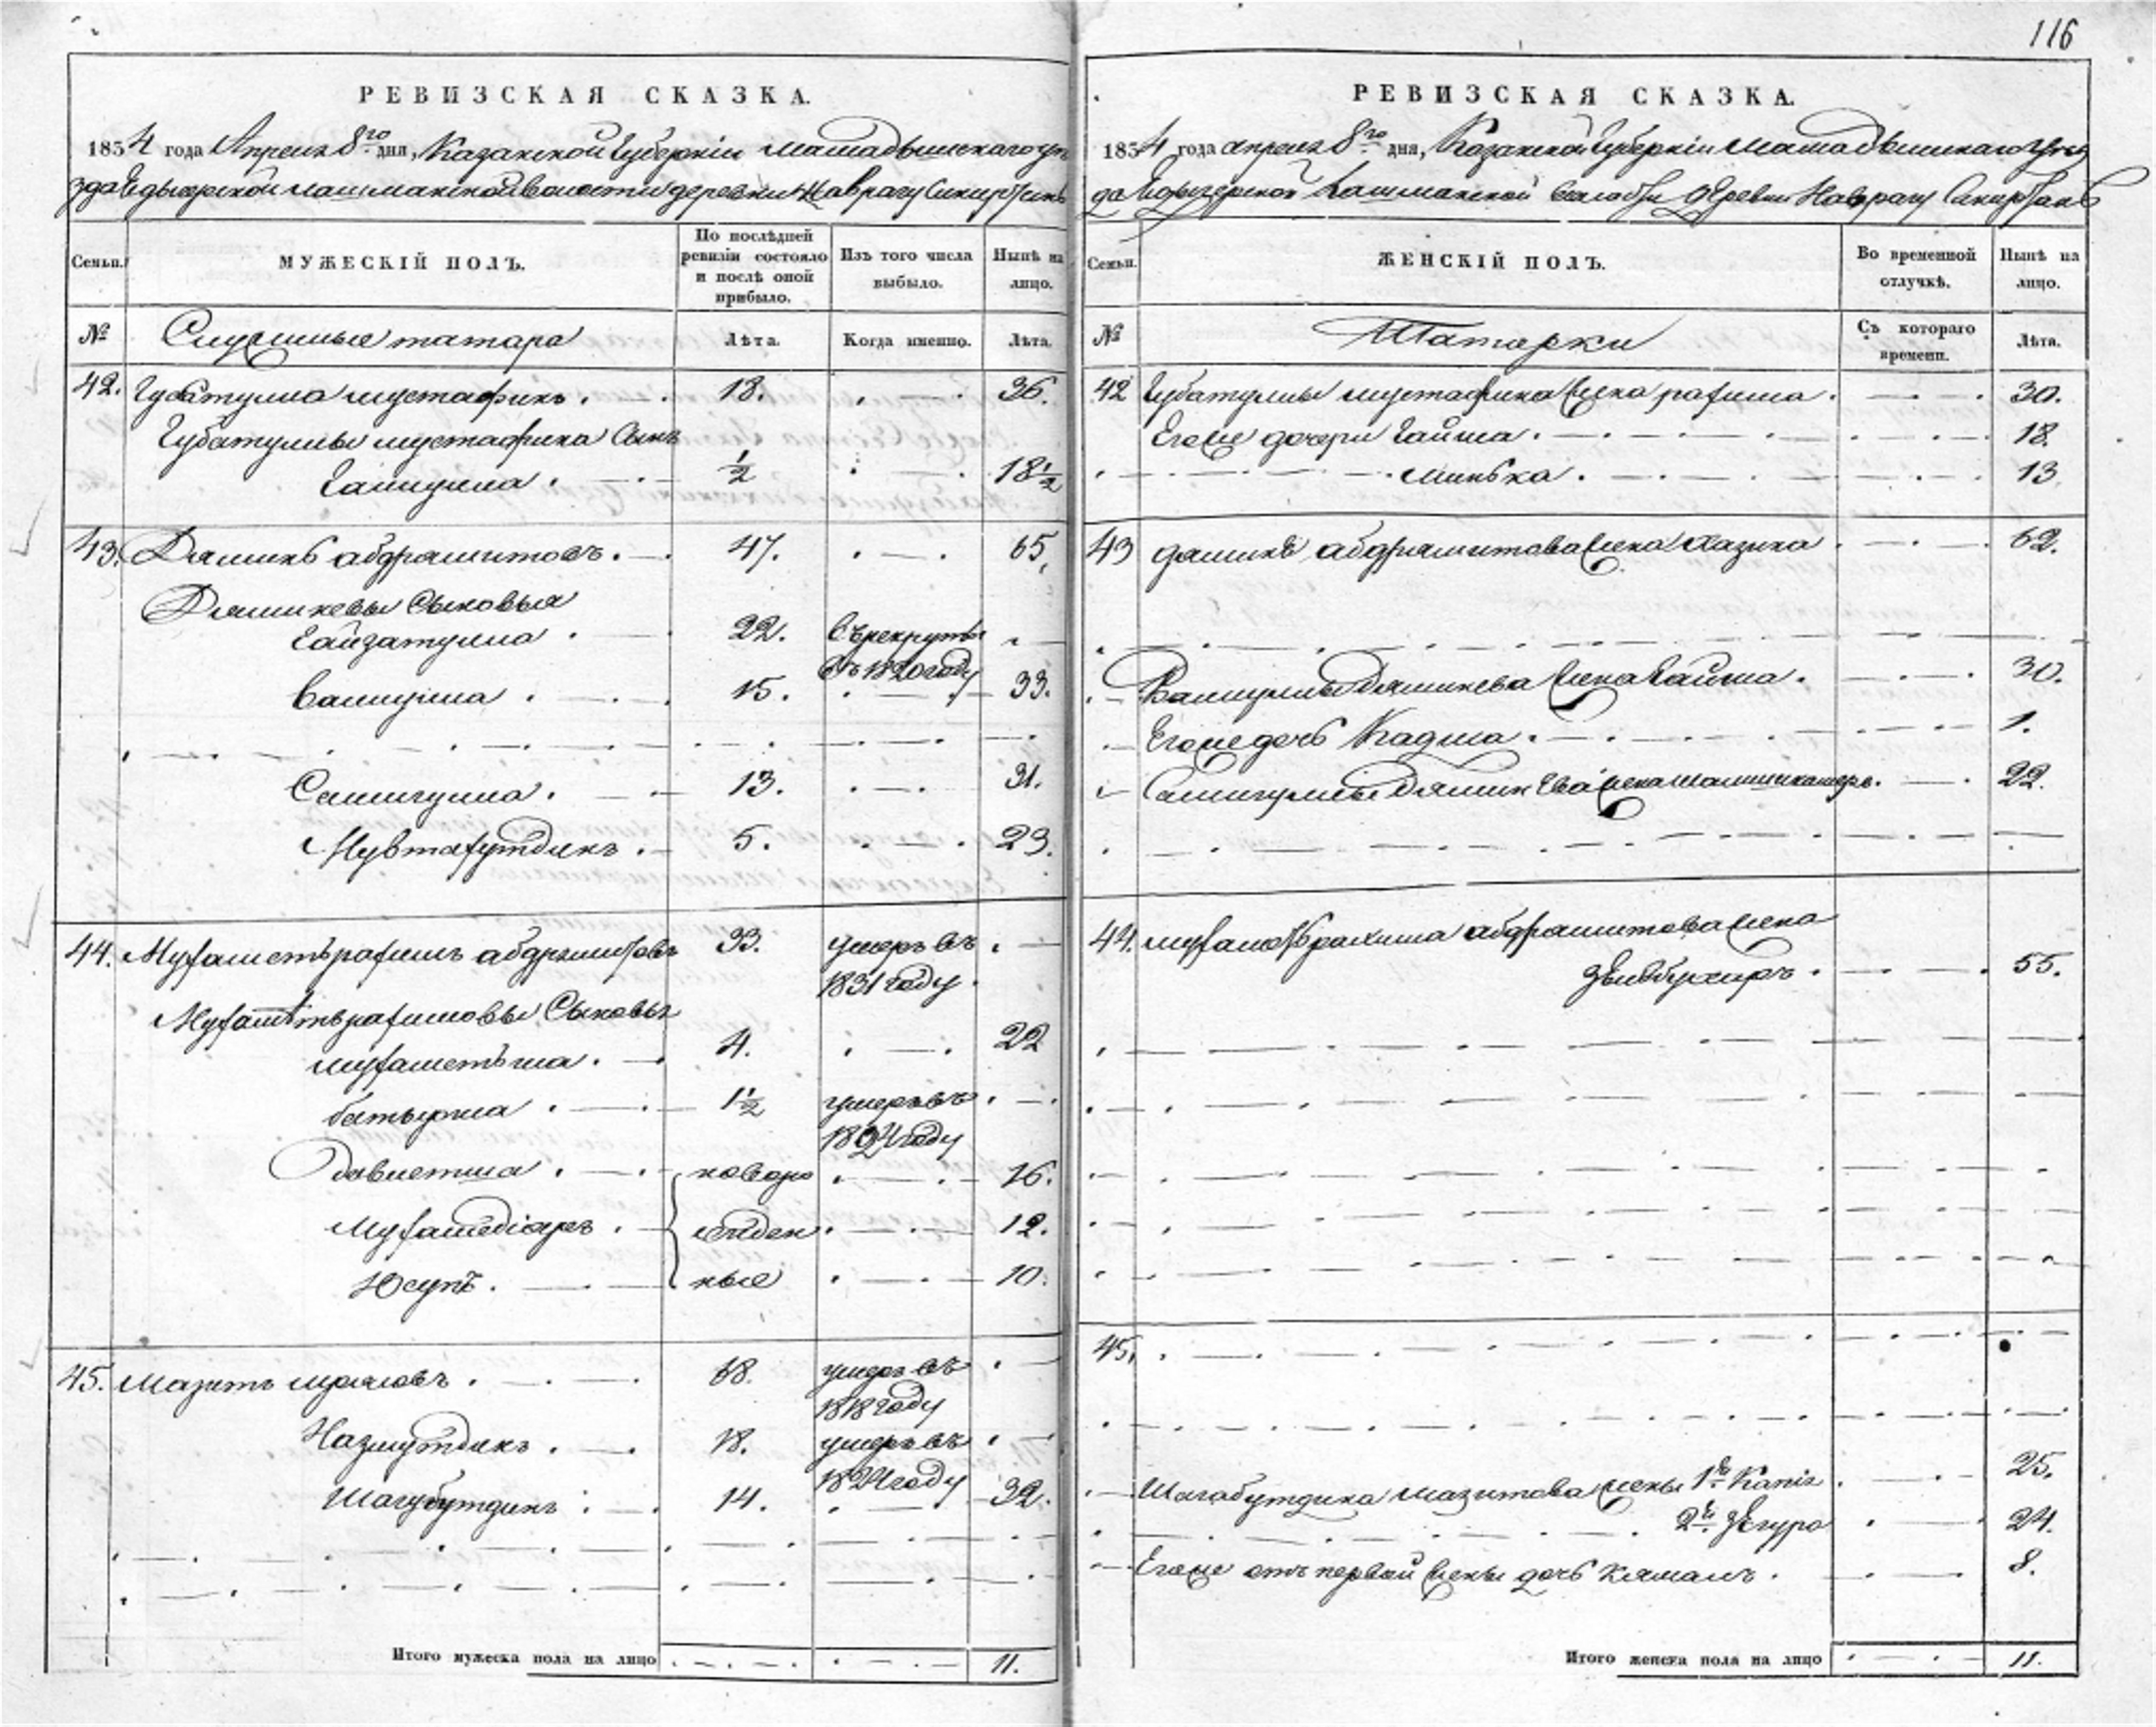 116
РЕВИЗСКАЯ СКАЗКА.
1834 года Апреля 8го дня, Казанской Губерніи Мамадышскаго уѣ
зда Едыгерской лашманской волости деревни
Семьи.
МУЖЕСКІЙ ПОЛЪ.
По послѣдней ревизіи состояло и послѣ оной прибыло.
Изъ того числа выбыло.
Нынѣ на лицо.
№
Служилые татара
Лѣта.
Когда именно.
Лѣта.
42. Губатулла мустафинъ . 18. 36.
Губатуллы мустафина Сынъ
Галиулла . ½ 18½
43. Дяминъ абдрашитовъ. 47. 65,
Дяминевы Сыновья
Гайзатулла . 22. въ рекруты
въ 1820 году
Валиулла . 15. 33.
Самигулла . 13. 31.
5. 23.
44. абдрашитовъ 33. умеръ въ
1831 году
Сыновья
мухаметьша . 4. 22
батырша . 1½ умеръ въ
1824 году
давлетша . новоро 16.
Мухамедіаръ . жден 12.
Юсупъ . ные 10.
45. Мазитъ . умеръ въ
1818 году
Назмутдинъ . 18. умеръ въ
1824 году
Шагубутдинъ 14. 32.
Итого мужеска пола на лицо 11.
РЕВИЗСКАЯ СКАЗКА.
1834 года апреля 8го дня, Казанской Губерніи Мамадышскаго Уѣз
да Едыгерской Лашманской деревни
Семьи.
ЖЕНСКІЙ ПОЛЪ.
Во временной отлучкѣ.
Нынѣ на лицо.
№
Татарки
Съ котораго времени.
Лѣта.
42 Губатуллы мустафина жена рахима . 30.
Егоже дочери Гайша . 18.
Минька . 13.
43 дяминя абдрашитова жена Хазина 62.
Валиуллы Дяминева жена Гайша . 30.
Егоже дочь Кадша . 1.
Самигуллы Дяминева жена 22.
44. абдрашитова жена
55.
45.
Шагабутдина мазитова жены 1я 25.
2я 24.
Егоже отъ первой жены дочь Кямалъ . 8.
Итого женска пола на лицо 11.